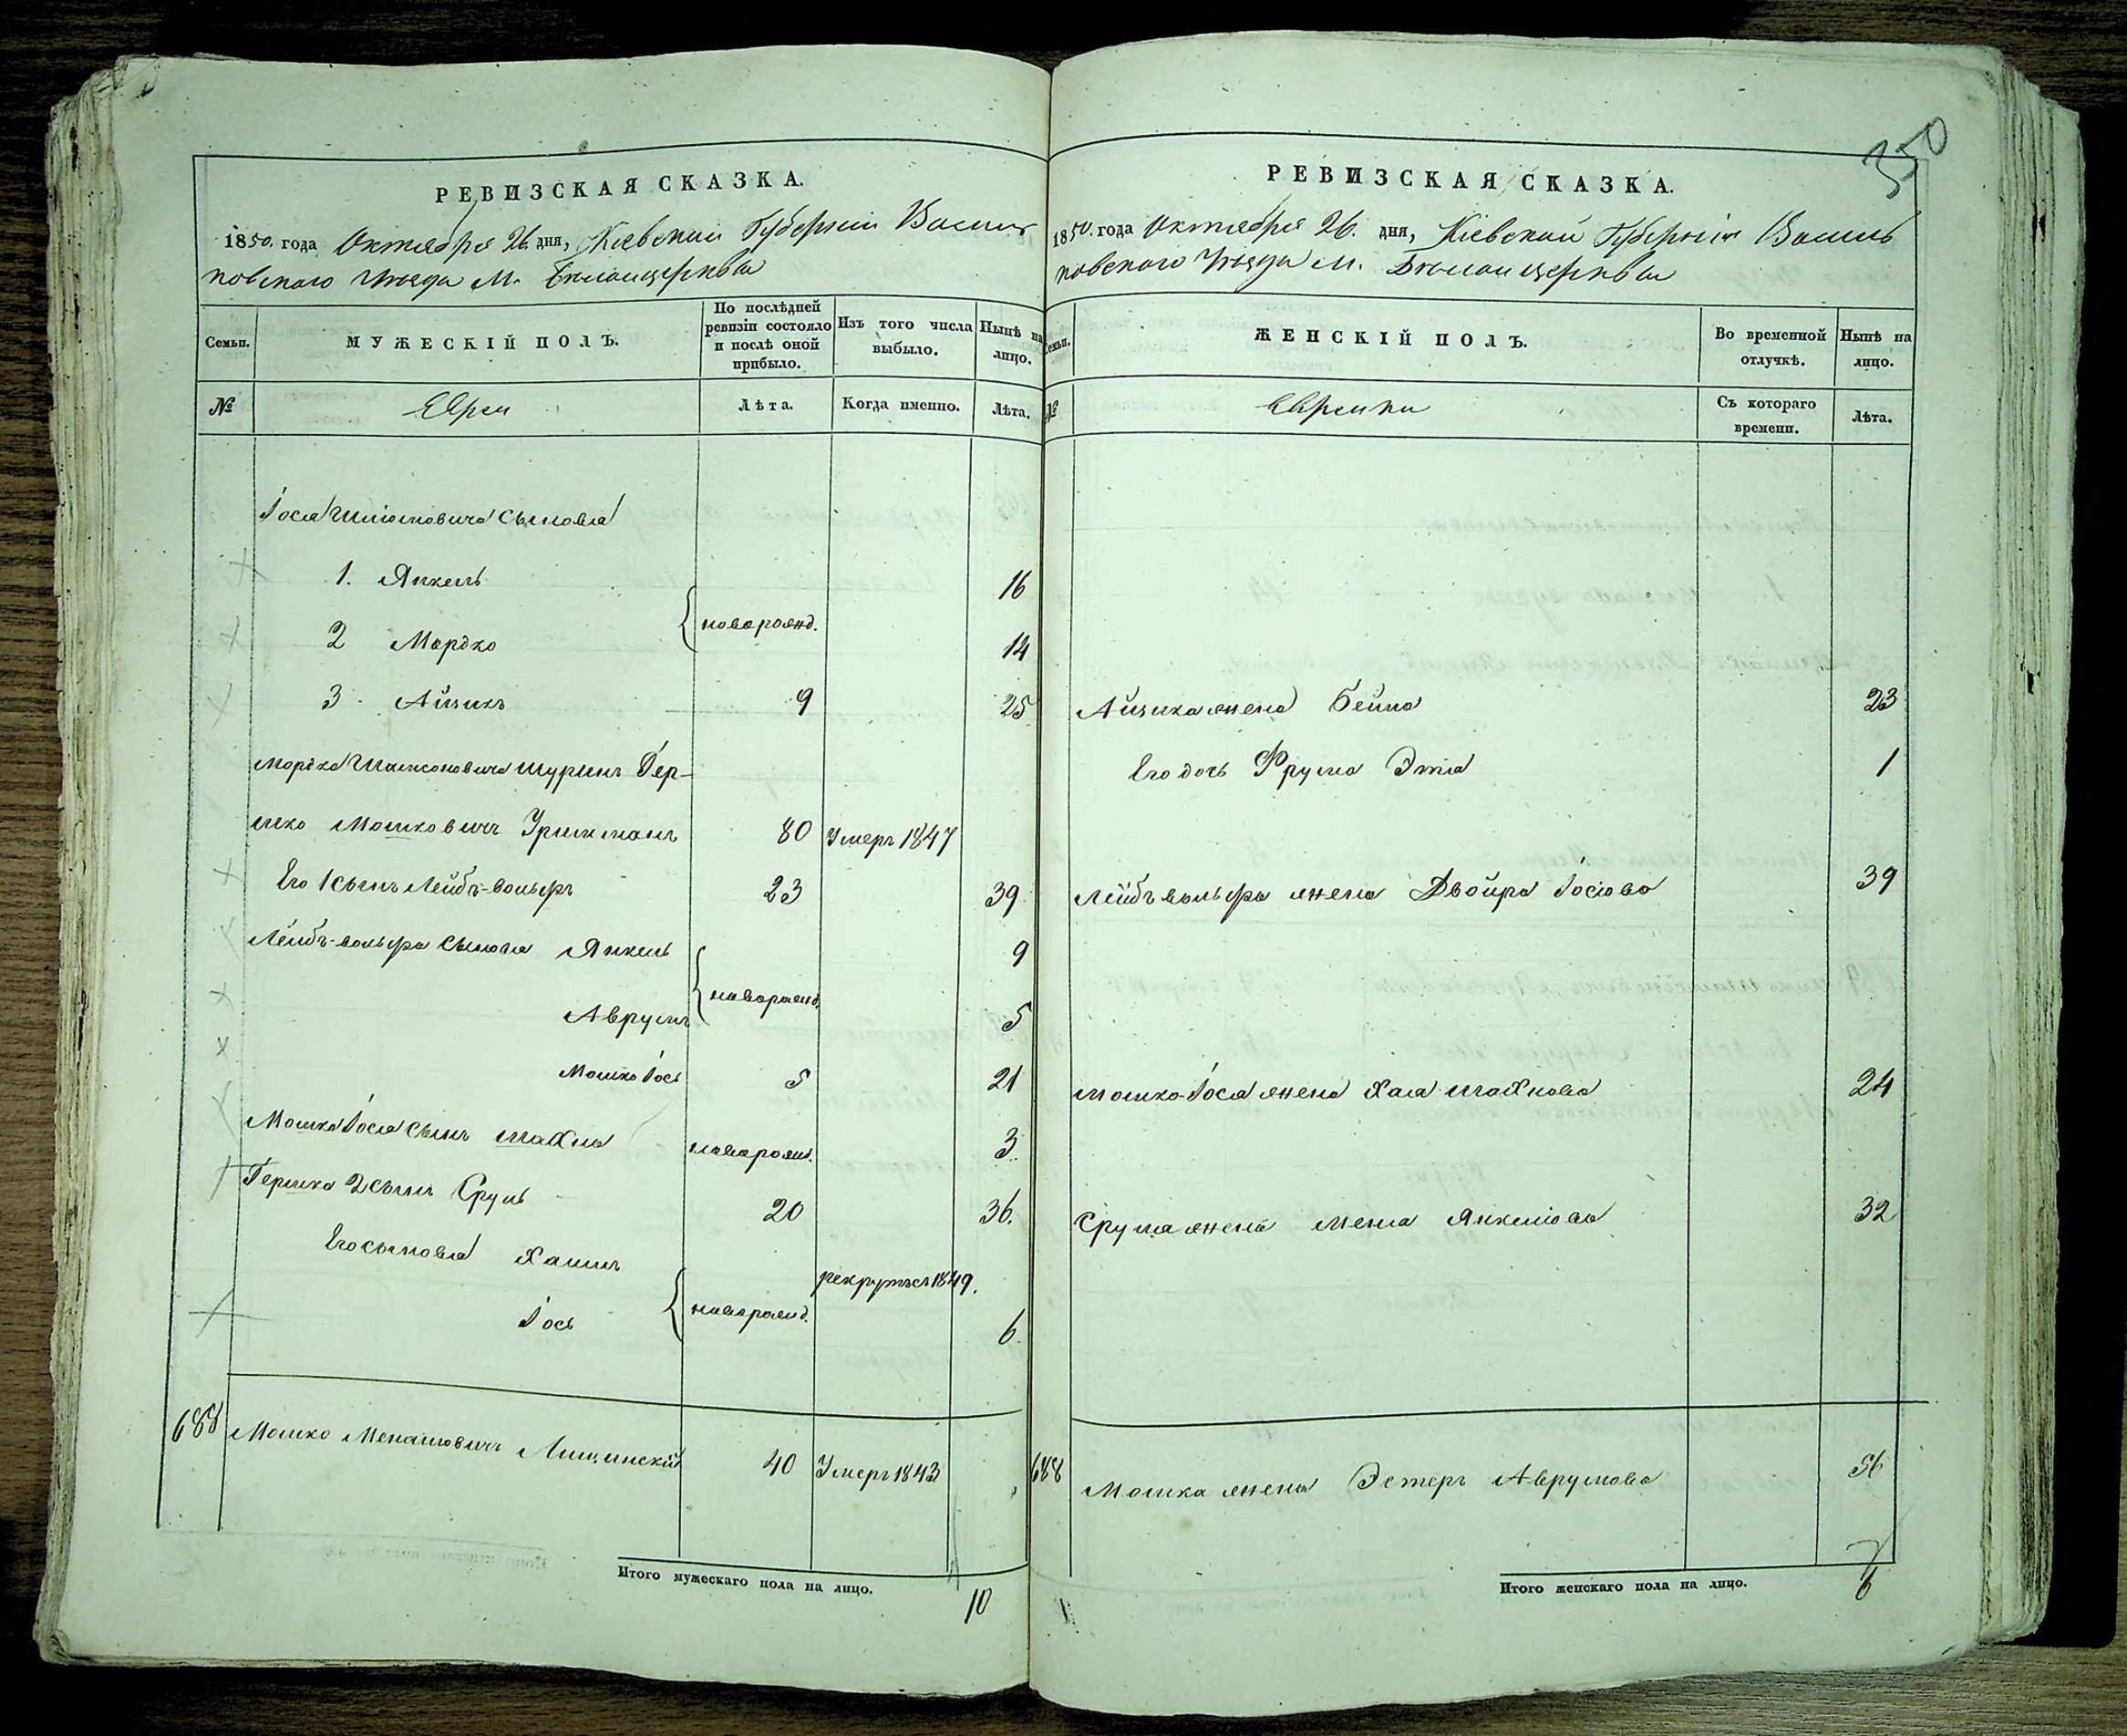 350
РЕВИЗСКАЯ СКАЗКА.
1850. года Октября 26. дня, Кіевской Губерніи Василь
ковскаго Уѣзда м. Бѣлой церкви
Семьи.
МУЖЕСКІЙ ПОЛЪ.
По послѣдней ревизіи состояло и послѣ оной прибыло.
Изъ того числа выбыло.
Нынѣ на лицо.
№
Евреи
Лѣта.
Когда именно.
Лѣта.
Іося Шліомовича сыновья
1. Янкель 16
новорожд.
2 Мордко 14
3. Айзикъ 9 25
Мордка Шамсоновича шуринъ Гер-
шко Мошковичъ Уришманъ 80 Умеръ 1847
Его 1 сынъ Лейбъ-вольфъ 23 39
Лейбъ-вольфа сыновья Янкель 9
новорожд.
Аврумъ 5
Мошко Іось 5 21
Мошка Іося сынъ Шахна новорожд. 3
Гершка 2 сынъ Сруль 20 36.
Его сыновья Хаимъ рекрутъ съ 1849.
новорожд.
Іось 6
688 Мошко Менашовичъ Лищинскій 40 Умеръ 1843
Итого мужескаго пола на лицо. 10
РЕВИЗСКАЯ СКАЗКА.
1850. года Октября 26. дня, Кіевской Губерніи Василь
ковскаго Уѣзда м. Бѣлой церкви
Семьи.
ЖЕНСКІЙ ПОЛЪ.
Во временной отлучкѣ.
Нынѣ на лицо.
№
Еврейки
Съ котораго времени.
Лѣта.
Айзика жена Бейла 23
Его дочь Фрума Этя 1
Лейбъ вольфа жена Двойра Іосіова 39
Мошко-Іося жена Хая Шахнова 24
Сруля жена Менья Янкеліова 32
688 Мошка жена Эстеръ Аврумова 56
Итого женскаго пола на лицо. 6